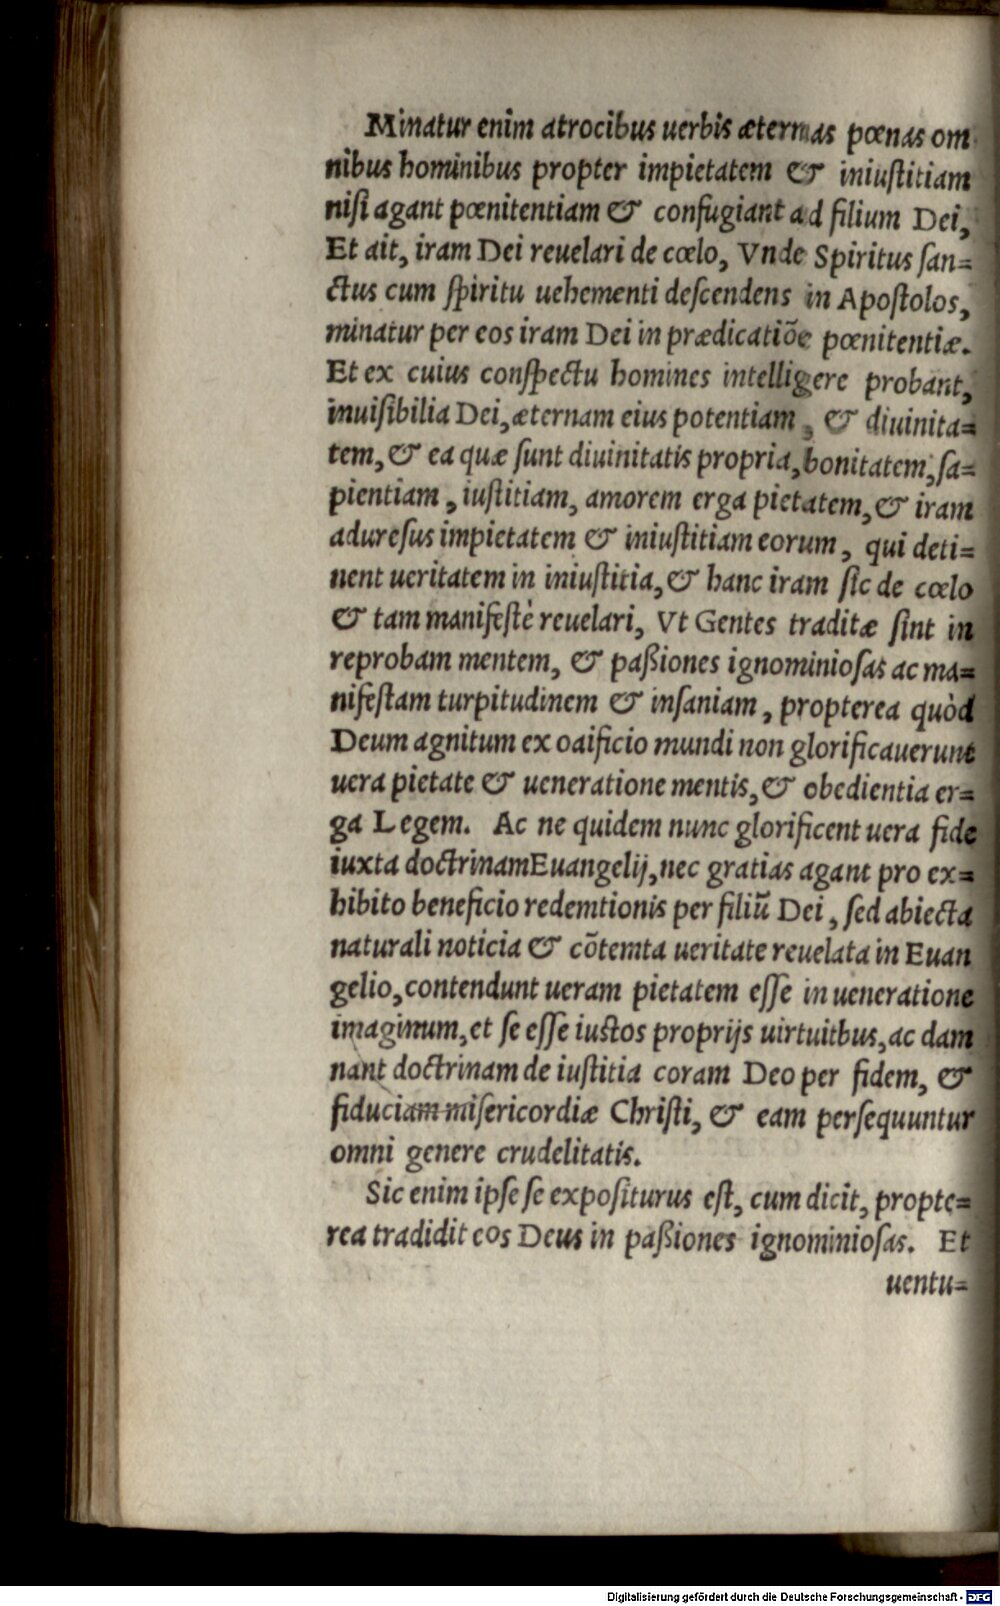 Minatur enim atrocibus uerbis æternas pœnas om
nibus hominibus propter impietatem & iniustitiam
nisi agant pœnitentiam & confugiant ad filium Dei,
Et ait, iram Dei reuelari de cœlo, Vnde Spiritus san=
ctus cum spiritu uehementi descendens in Apostolos,
minatur per eos iram Dei in prædicatiõe pœnitentiæ.
Et ex cuius conspectu homines intelligere probant,
inuisibilia Dei, æternam eius potentiam, & diuinita=
tem, & ea quæ sunt diuinitatis propria, bonitatem, sa=
pientiam, iustitiam, amorem erga pietatem, & iram
aduresus impietatem & iniustitiam eorum, qui deti=
nent ueritatem in iniustitia, & hanc iram sic de cœlo
& tam manifestè reuelari, Vt Gentes traditæ sint in
reprobam mentem, & paßiones ignominiosas ac ma=
nifestam turpitudinem & insaniam, propterea quòd
Deum agnitum ex oaificio mundi non glorificauerunt
uera pietate & ueneratione mentis, & obedientia er=
ga Legem. Ac ne quidem nunc glorificent uera fide
iuxta doctrinamEuangelij, nec gratias agant pro ex=
hibito beneficio redemtionis per filiũ Dei, sed abiecta
naturali noticia & cõtemta ueritate reuelata in Euan
gelio, contendunt ueram pietatem esse in ueneratione
imaginum, et se esse iustos proprijs uirtuitbus, ac dam
nant doctrinam de iustitia coram Deo per fidem, &
fiduciam misericordiæ Christi, & eam persequuntur
omni genere crudelitatis.
Sic enim ipse se expositurus est, cum dicit, propte=
rea tradidit eos Deus in paßiones ignominiosas. Et
uentu=
Digitalisierung gefördert durch die Deutsche Forschungsgemeinschaft - DFG